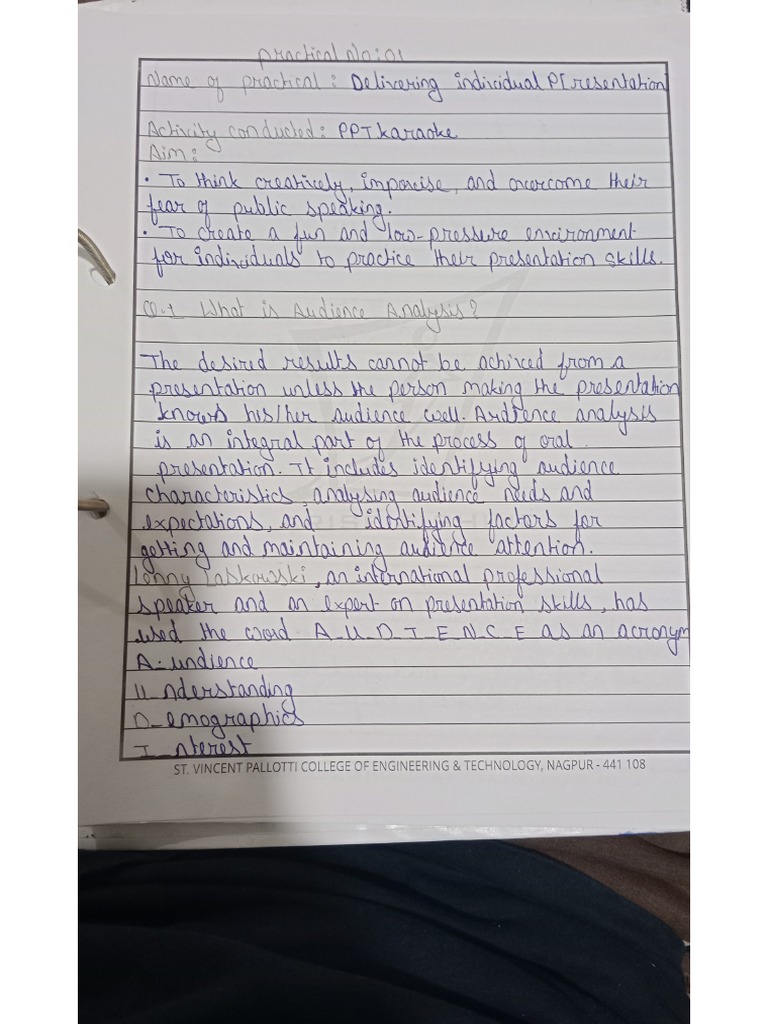 Practical No:01
Name of practical: Delivering individual P[resentation
Activity conducted: PPT karaoke
Aim:
• To think creatively, imporcise, and overcome their
fear of public speaking.
• To create a fun and low-pressure environment
for individuals to practice their presentation skills.
Q.1 What is Audience Analysis?
The desired results cannot be achived from a
presentation unless the person making the presentation
knows his/her audience well. Audience analysis
is an integral part of the process of oral
presentation. It includes identifying audience
characteristics, analysing audience needs and
expectations, and identifying factors for
getting and maintaining audience attention.
Lenny Laskowski, an international professional
speaker and an expert on presentation skills, has
used the word A_U_D_I_E_N_C_E as an acronym
A-undience
U_nderstanding
D_emographics
I_nterest
ST. VINCENT PALLOTTI COLLEGE OF ENGINEERING & TECHNOLOGY, NAGPUR - 441 108